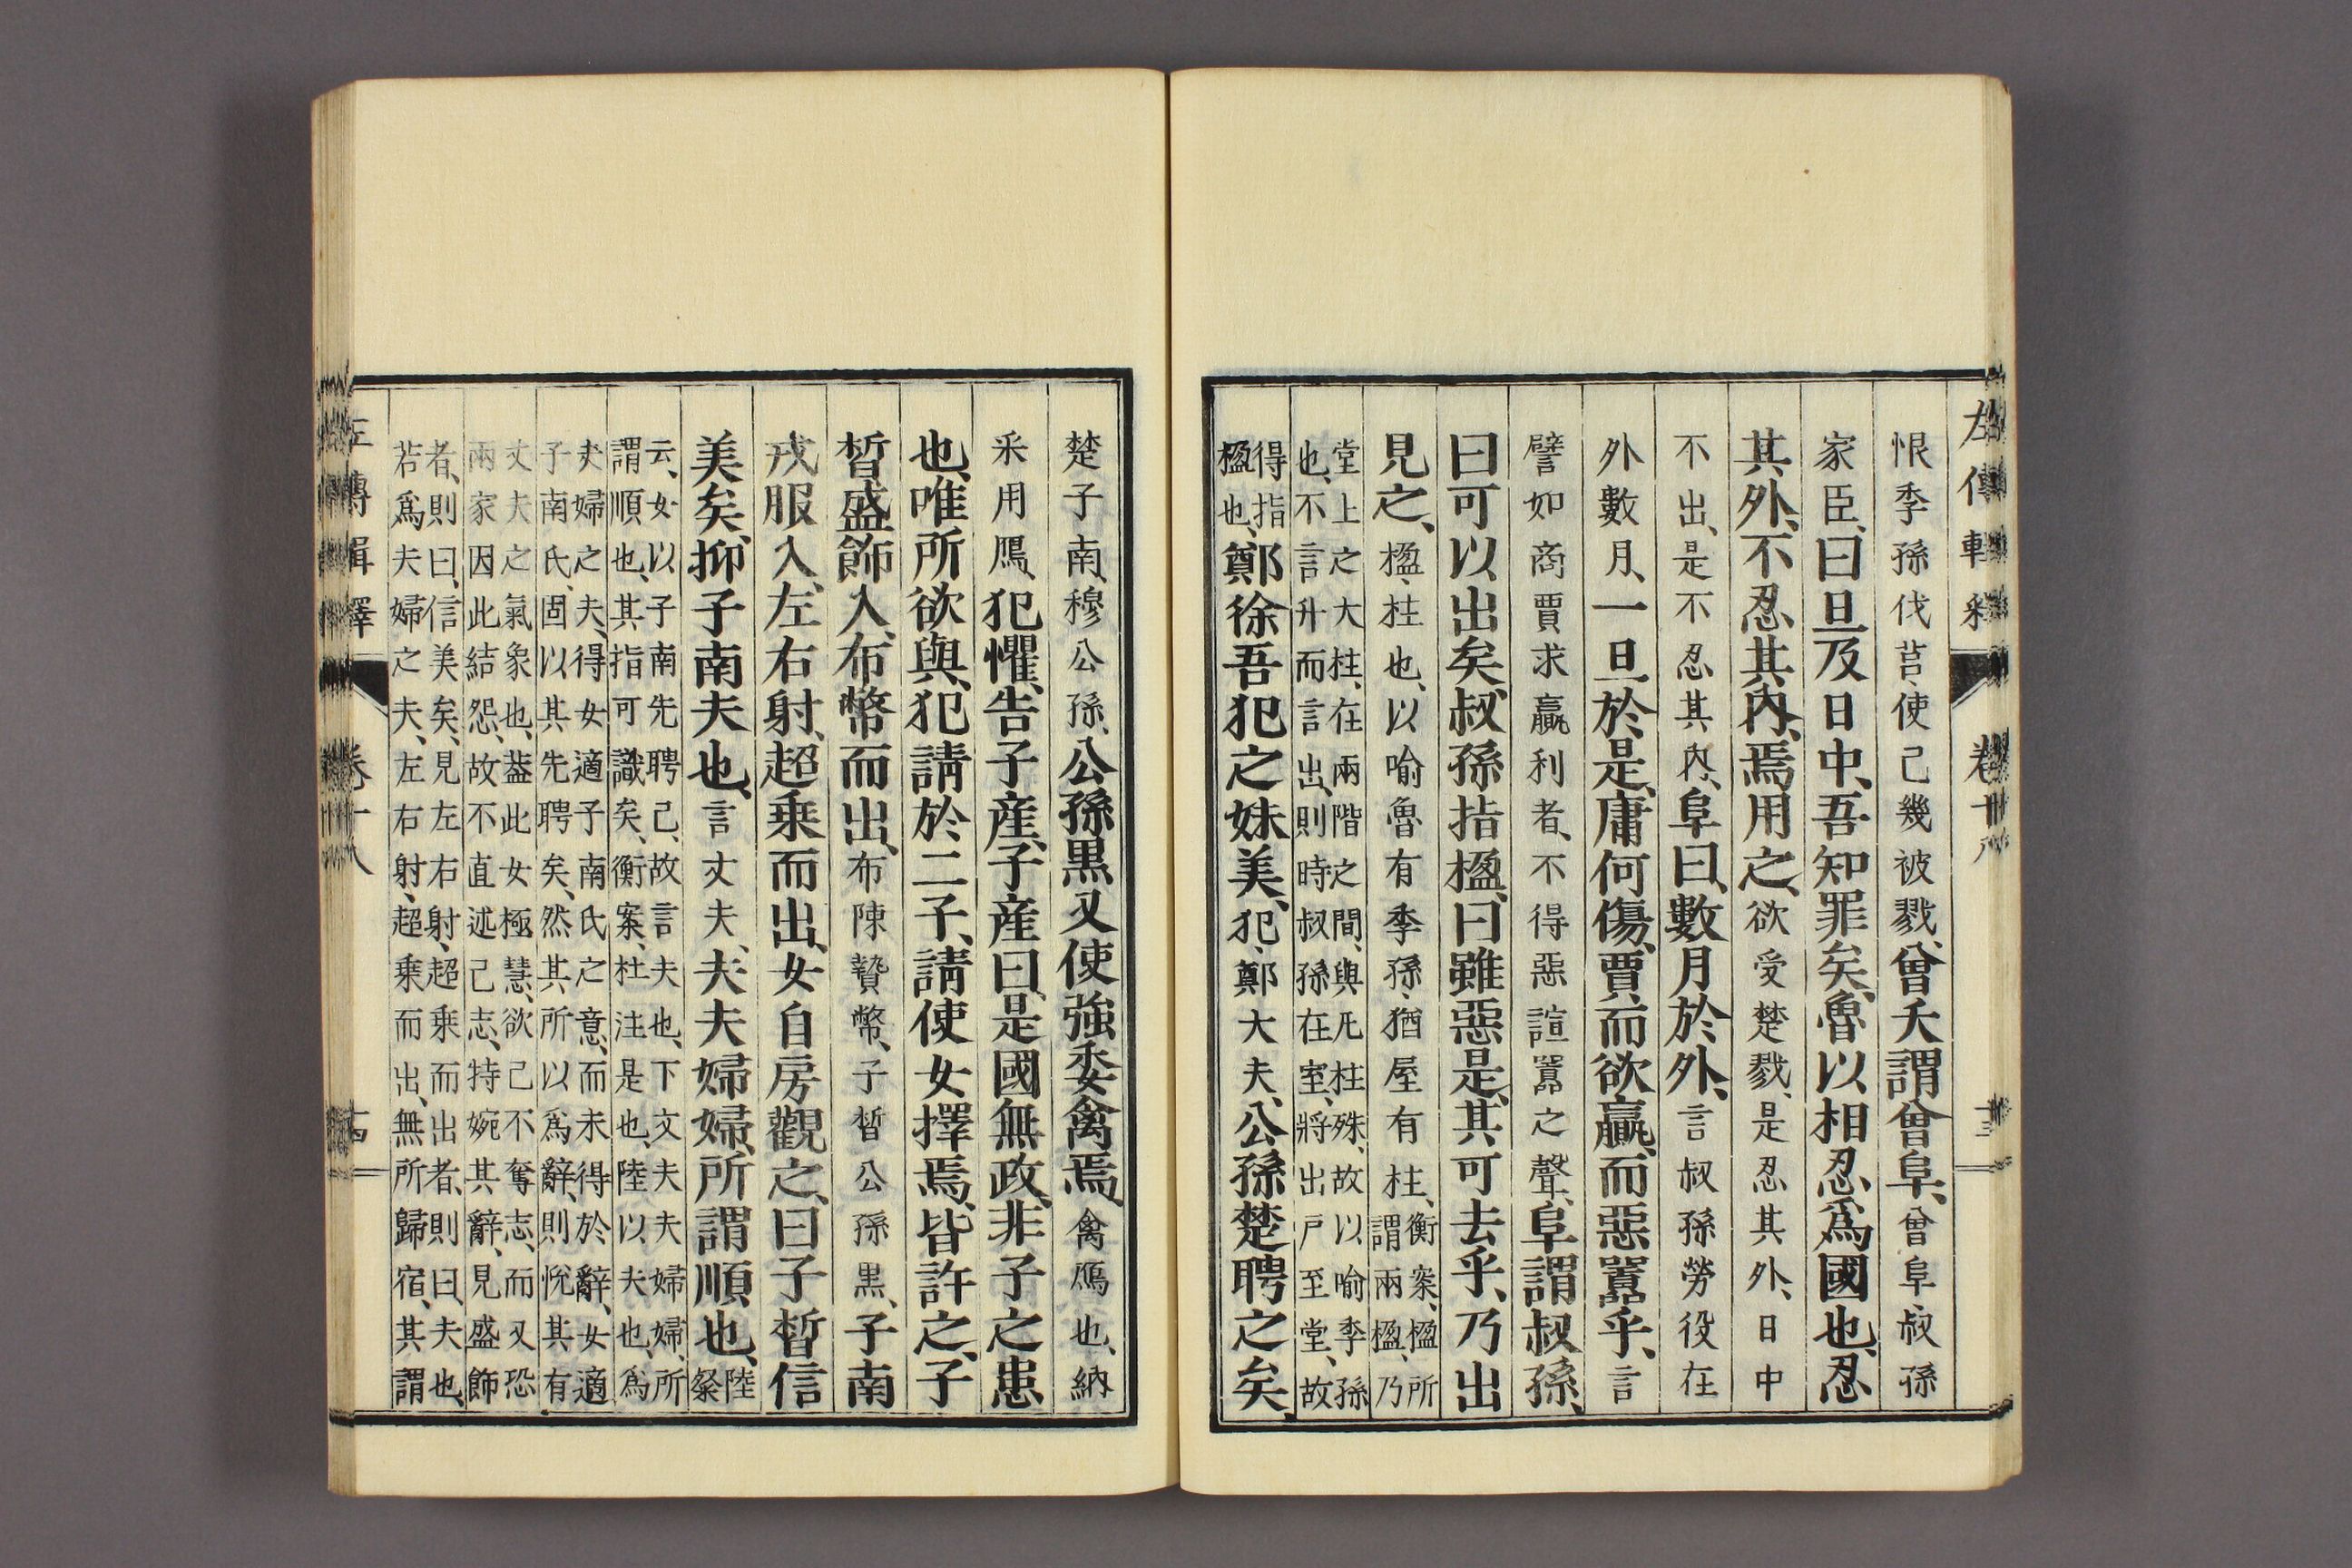 恨季孫伐莒、使己幾被戮、曾夭謂曾阜、曾阜叔孫
家臣、曰旦及日中、吾知罪矣、魯以相忍爲國也、忍
其外、不忍其內、焉用之、欲受楚戮、是忍其外、日中
不出、是不忍其內、阜曰、數月於外、言叔孫勞役在
外數月、一旦於是、庸何傷、賈而欲贏、而惡囂乎、言
譬如商賈求贏利者、不得惡諠囂之聲、阜謂叔孫、
曰可以出矣、叔孫指楹、曰雖惡是、其可去乎、乃出
見之、楹、柱也、以喻魯有季孫、猶屋有柱、衡案、楹所
謂兩楹、乃
堂上之大柱、在兩階之間、與凡柱殊、故以喻季孫
也、不言升而言出、則時叔孫在室、將出戶至堂、故
得指
楹也、鄭徐吾犯之妹美、犯、鄭大夫、公孫楚聘之矣、
楚子南、穆公孫、公孫黑又使強委禽焉、禽鴈也、納
采用鴈、犯懼、告子產、子產曰、是國無政、非子之患
也、唯所欲與、犯請於二子、請使女擇焉、皆許之、子
晳盛飾入、布幣而出、布陳贄幣、子晳公孫黑、子南
戎服入、左右射、超乘而出、女自房觀之、曰子晳信
美矣、抑子南夫也、言丈夫、夫夫婦婦、所謂順也、陸
粲
云、女以子南先聘己、故言夫也、下文夫夫婦婦、所
謂順也、其指可識矣、衡案、杜注是也、陸以夫也、爲
夫婦之夫、得女適子南氏之意、而未得於辭、女適
子南氏、固以其先聘矣、然其所以爲辭、則悅其有
丈夫之氣象也、蓋此女極慧、欲己不奪志、而又恐
兩家因此結怨、故不直述己志、特婉其辭、見盛飾
者、則曰、信美矣、見左右射、超乘而出者、則曰、夫也、
若爲夫婦之夫、左右射、超乘而出、無所歸宿、其謂
左傳輯釋 卷十八 十四